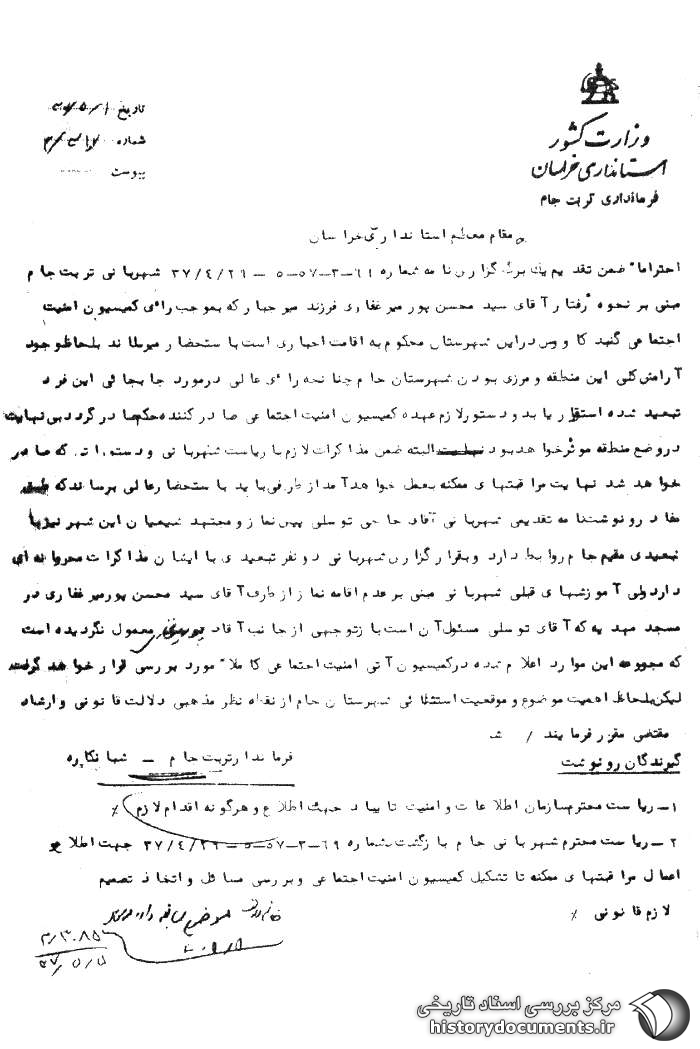 وزارت کشور
استانداری خراسان
فرمانداری تربت جام
تاریخ
شماره
پیوست
مقام معظم استانداری خراسان
احتراما" ضمن تقدیم یک برگ گزارش نامه شماره ۶۹-۳-۵۷-۵-۳۷/۴/۲۹ شهربانی تربت جام
مبنی بر نحوه رفتار آقای سید محسن پور میرغفاری فرزند میرجبار که بموجب رای کمیسیون امنیت
اجتماعی گنبد کاووس دراین شهرستان محکوم به اقامت اجباری است باستحضار میرساند بلحاظ وجود
آرامش کلی این منطقه و مرزی بودن شهرستان جام چنانچه رای عالی درمورد جابجائی این فرد
تبعید شده استقرار یابد و دستور لازم عهده کمیسیون امنیت اجتماعی صادر کننده حکم صادر گردد بی نهایت
دروضع منطقه موثر خواهد بود البته ضمن مذاکرات لازم با ریاست شهربانی و دستوراتی که صادر
خواهد شد نهایت مراقبتهای ممکنه بعمل خواهد آمد از طرفی باید باستحضار عالی برساند که طبق
مفاد رونوشت نامه تقدیمی شهربانی آقای حاجی توسلی پیش نماز و مجتهد شیعیان این شهر نیز با
تبعیدی مقیم جام روابط دارد و بقرار گزارش شهربانی دو نفر تبعیدی با ایشان مذاکرات محرمانه ای
دارد ولی آموزشهای قبلی شهربانی مبنی بر عدم اقامه نماز از طرف آقای سید محسن پورمیرغفاری در
مسجد مهدیه که آقای توسلی مسئول آن است باز توجهی از جانب آقای معمول نگردیده است
که مجموعه این موارد اعلام شده درکمیسیون آتی امنیت اجتماعی کاملا" مورد بررسی قرار خواهد گرفت
لیکن بلحاظ اهمیت موضوع و موقعیت استثنائی شهرستان جام از نقطه نظر مذهبی دلالت قانونی و ارشاد
مقتضی مقرر فرمایند /
فرماندار تربت جام - شبانکاره
گیرندگان رونوشت
۱- ریاست محترم سازمان اطلاعات و امنیت تایباد جهت اطلاع و هرگونه اقدام لازم ٪
۲- ریاست محترم شهربانی جام بازگشت بشماره ۶۹-۳-۵۷-۵-۳۷/۴/۲۹ جهت اطلاع و
اعمال مراقبتهای ممکنه تا تشکیل کمیسیون امنیت اجتماعی و بررسی مسائل و اتخاذ تصمیم
لازم قانونی ٪
مرکز بررسی اسناد تاریخی
historydocuments.ir